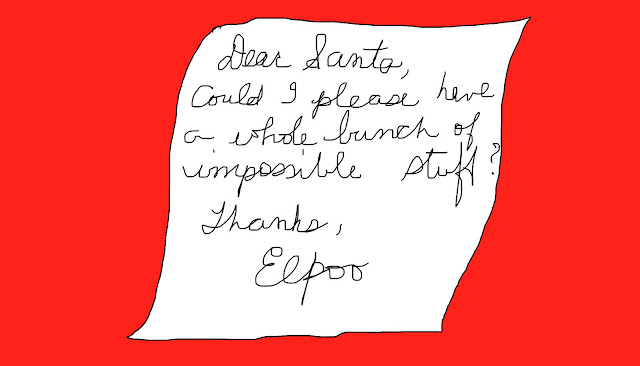 Dear Santa,
Could I please have
a whole bunch of
impossible stuff?
Thanks,
Elpoo